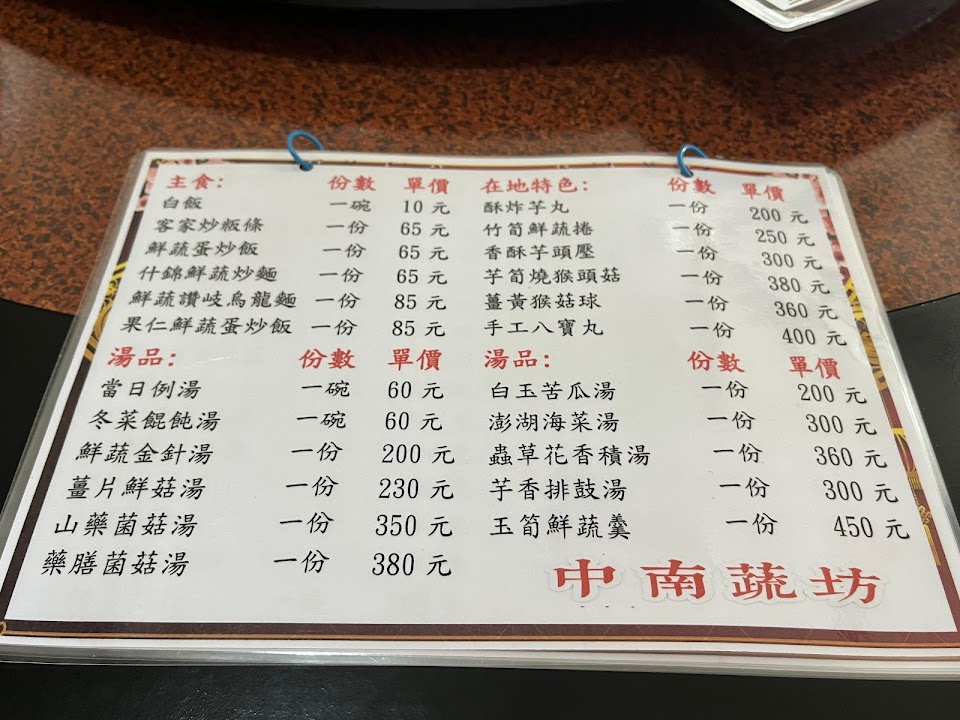 主食： 份數 單價
白飯 一碗 10 元
客家炒粄條 一份 65 元
鮮蔬蛋炒飯 一份 65 元
什錦鮮蔬炒麵 一份 65 元
鮮蔬讚岐烏龍麵 一份 85 元
果仁鮮蔬蛋炒飯 一份 85 元
在地特色： 份數 單價
酥炸芋丸 一份 200 元
竹筍鮮蔬捲 一份 250 元
香酥芋頭壓 一份 300 元
芋筍燒猴頭菇 一份 380 元
薑黃猴菇球 一份 360 元
手工八寶丸 一份 400 元
湯品： 份數 單價
當日例湯 一碗 60 元
冬菜餛飩湯 一碗 60 元
鮮蔬金針湯 一份 200 元
薑片鮮菇湯 一份 230 元
山藥菌菇湯 一份 350 元
藥膳菌菇湯 一份 380 元
湯品： 份數 單價
白玉苦瓜湯 一份 200 元
澎湖海菜湯 一份 300 元
蟲草花香積湯 一份 360 元
芋香排鼓湯 一份 300 元
玉筍鮮蔬羹 一份 450 元
中南蔬坊